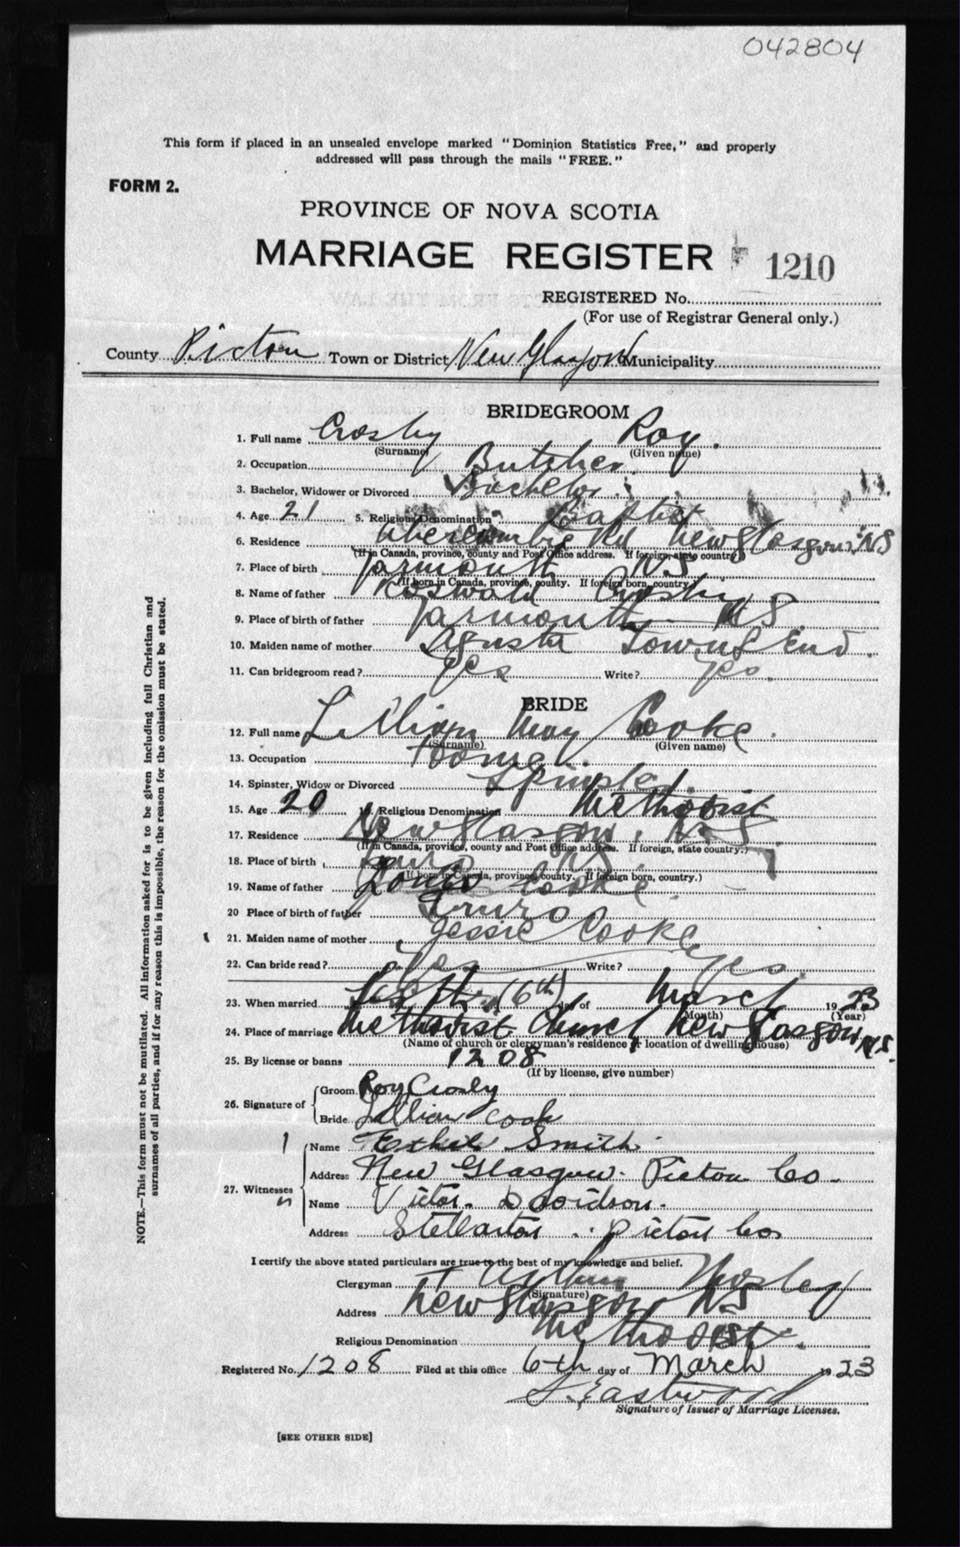 042804
This form if placed in an unsealed envelope marked "Dominion Statistics Free," and properly
addressed will pass through the mails "FREE."
FORM 2.
PROVINCE OF NOVA SCOTIA
MARRIAGE REGISTER 1210
REGISTERED No.
(For use of Registrar General only.)
County Pictou Town or District New Glasgow Municipality
BRIDEGROOM
1. Full name Crosby Roy.
(Surname) (Given name)
2. Occupation Butcher.
3. Bachelor, Widower or Divorced Bachelor.
4. Age 21 5. Religious Denomination Baptist
6. Residence Abercrombie Rd New Glasgow, NS
(If in Canada, province, county and Post Office address. If foreign state country)
7. Place of birth Yarmouth NS
(If born in Canada, province, county. If foreign born, country)
8. Name of father Crosby
9. Place of birth of father Yarmouth NS.
10. Maiden name of mother Townsend.
11. Can bridegroom read? yes Write? yes.
BRIDE
12. Full name Lillian May Cooke.
(Surname) (Given name)
13. Occupation Home.
14. Spinster, Widow or Divorced Spinster.
15. Age 20 16. Religious Denomination Methodist
17. Residence New Glasgow, N.S.
(If in Canada, province, county and Post Office address. If foreign, state country.)
18. Place of birth Truro NS
(If born in Canada, province, county. If foreign born, country.)
19. Name of father Cooke
20 Place of birth of father Truro
21. Maiden name of mother Jessie Cooke
22. Can bride read? yes Write? yes.
23. When married (6th) day of March 1923
(Month) (Year)
24. Place of marriage Methodist Church New Glasgow N.S.
(Name of church or clergyman's residence or location of dwelling house)
25. By license or banns 1208
(If by license, give number)
26. Signature of
Groom Roy Crosby
Bride Lillian Cook
27. Witnesses
Name Ethel Smith
Address New Glasgow. Pictou Co.
Name Victor Davidson.
Address Stellarton. Pictou Co
I certify the above stated particulars are true to the best of my knowledge and belief.
Clergyman Mosley
(Signature)
Address New Glasgow NS
Religious Denomination Methodist.
Registered No. 1208 Filed at this office 6th day of March 1923
Eastwood
Signature of Issuer of Marriage Licenses.
[SEE OTHER SIDE]
NOTE.—This form must not be mutilated. All information asked for is to be given including full Christian and
surnames of all parties, and if for any reason this is impossible, the reason for the omission must be stated.